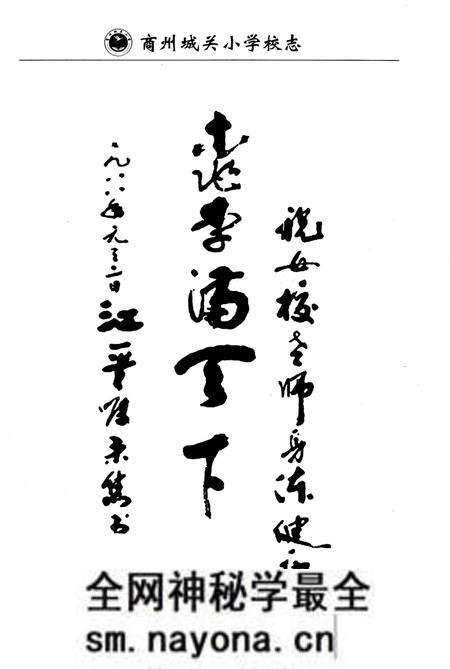 商州城关小学校志
祝母校老师身体健
桃李满天下
一九八八年元月二日
全网神秘学最全
sm.nayona.cn